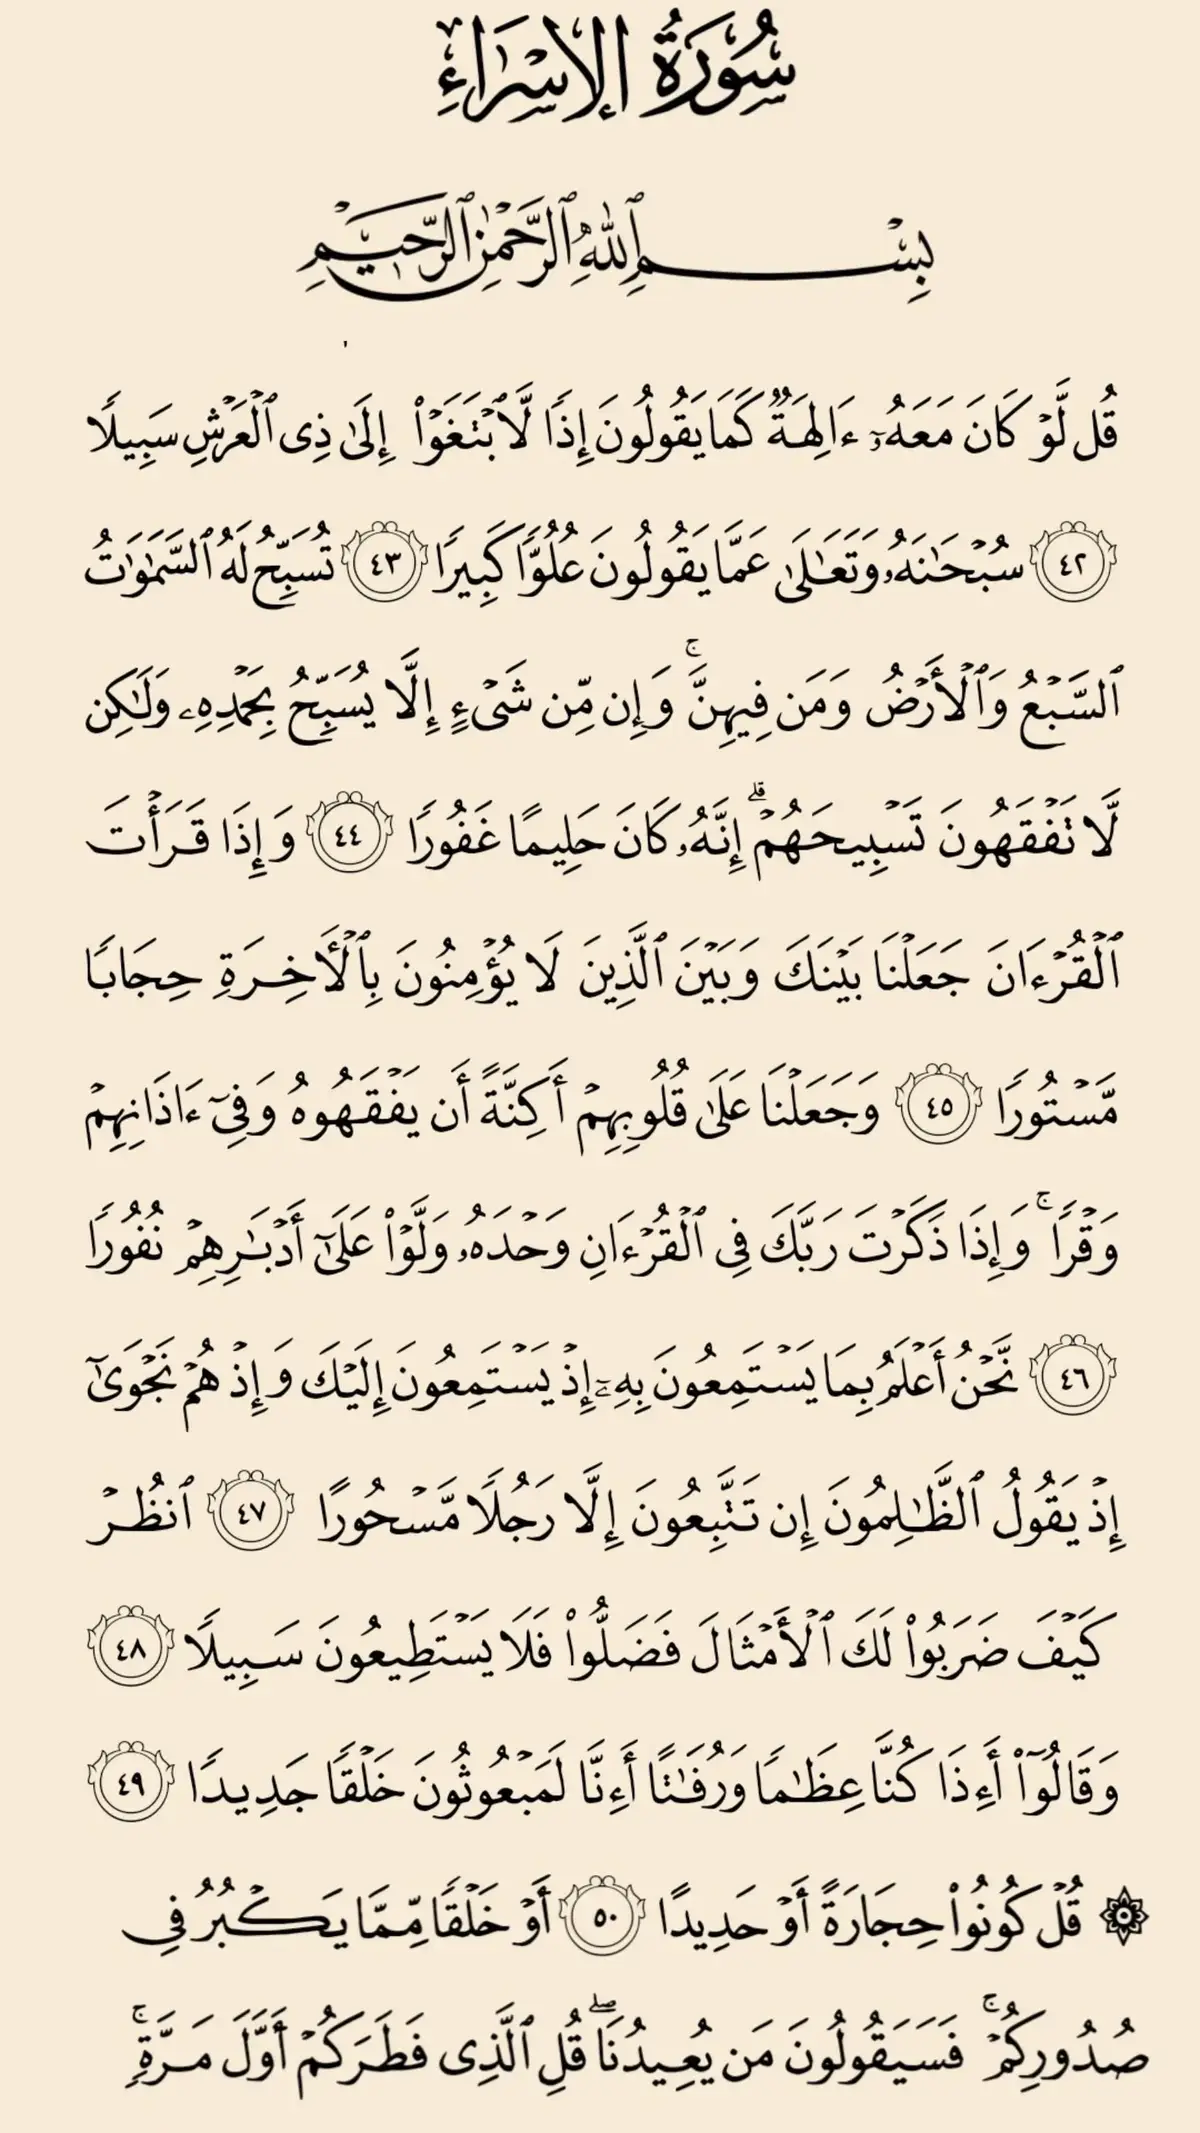 سُورَةُ الإِسْرَاءِ
بِسْمِ ٱللَّهِ ٱلرَّحْمَٰنِ ٱلرَّحِيمِ
قُل لَّوْ كَانَ مَعَهُۥٓ ءَالِهَةٌ كَمَا يَقُولُونَ إِذًا لَّٱبْتَغَوْا۟ إِلَىٰ ذِى ٱلْعَرْشِ سَبِيلًا
٤٢ سُبْحَٰنَهُۥ وَتَعَٰلَىٰ عَمَّا يَقُولُونَ عُلُوًّا كَبِيرًا ٤٣ تُسَبِّحُ لَهُ ٱلسَّمَٰوَٰتُ
ٱلسَّبْعُ وَٱلْأَرْضُ وَمَن فِيهِنَّ ۚ وَإِن مِّن شَىْءٍ إِلَّا يُسَبِّحُ بِحَمْدِهِۦ وَلَٰكِن
لَّا تَفْقَهُونَ تَسْبِيحَهُمْ ۗ إِنَّهُۥ كَانَ حَلِيمًا غَفُورًا ٤٤ وَإِذَا قَرَأْتَ
ٱلْقُرْءَانَ جَعَلْنَا بَيْنَكَ وَبَيْنَ ٱلَّذِينَ لَا يُؤْمِنُونَ بِٱلْأَخِرَةِ حِجَابًا
مَّسْتُورًا ٤٥ وَجَعَلْنَا عَلَىٰ قُلُوبِهِمْ أَكِنَّةً أَن يَفْقَهُوهُ وَفِىٓ ءَاذَانِهِمْ
وَقْرًا ۚ وَإِذَا ذَكَرْتَ رَبَّكَ فِى ٱلْقُرْءَانِ وَحْدَهُۥ وَلَّوْا۟ عَلَىٰٓ أَدْبَٰرِهِمْ نُفُورًا
٤٦ نَّحْنُ أَعْلَمُ بِمَا يَسْتَمِعُونَ بِهِۦٓ إِذْ يَسْتَمِعُونَ إِلَيْكَ وَإِذْ هُمْ نَجْوَىٰٓ
إِذْ يَقُولُ ٱلظَّٰلِمُونَ إِن تَتَّبِعُونَ إِلَّا رَجُلًا مَّسْحُورًا ٤٧ ٱنظُرْ
كَيْفَ ضَرَبُوا۟ لَكَ ٱلْأَمْثَالَ فَضَلُّوا۟ فَلَا يَسْتَطِيعُونَ سَبِيلًا ٤٨
وَقَالُوٓا۟ أَءِذَا كُنَّا عِظَٰمًا وَرُفَٰتًا أَءِنَّا لَمَبْعُوثُونَ خَلْقًا جَدِيدًا ٤٩
۞ قُلْ كُونُوا۟ حِجَارَةً أَوْ حَدِيدًا ٥٠ أَوْ خَلْقًا مِّمَّا يَكْبُرُ فِى
صُدُورِكُمْ ۚ فَسَيَقُولُونَ مَن يُعِيدُنَا ۖ قُلِ ٱلَّذِى فَطَرَكُمْ أَوَّلَ مَرَّةٍ ۚ